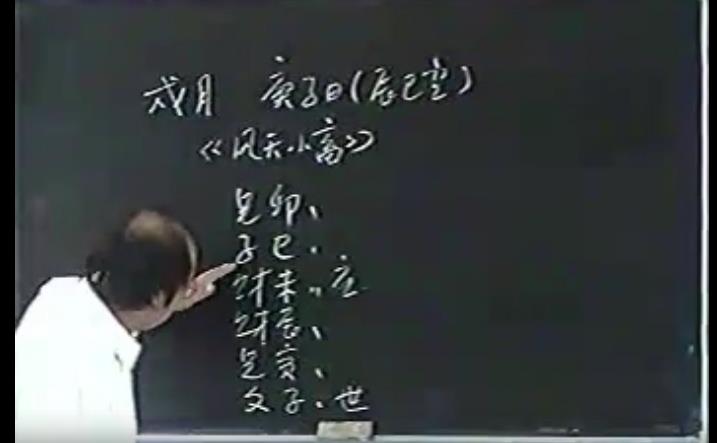 戌月 庚子日(辰巳空)
《风天小畜》
兄卯、
子巳、
财未〃应
财辰、
兄寅、
父子、世